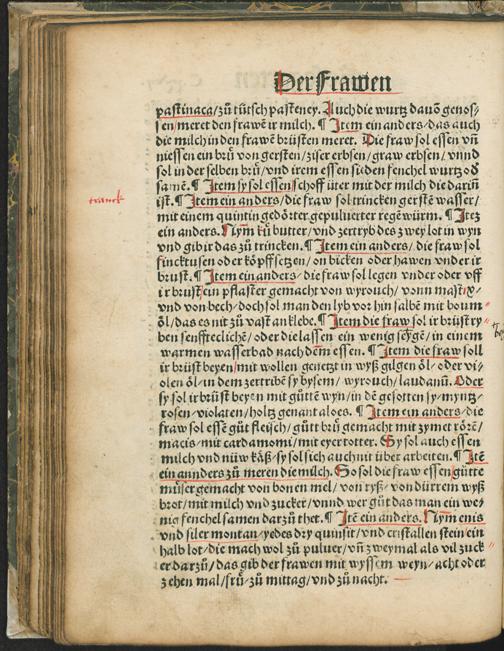 Der Frawen
pastinaca/zů tütsch pasteney. Auch die wurtz dauõ genos-
sen/meret den frawẽ ir milch. ¶ Item ein anders/das auch
die milch in den frawẽ brüsten meret. Die fraw sol essen vñ
niessen ein brü von gersten/ziser erbsen/graw erbsen/vnnd
sol in der selben brü/vnd irem essen sieden fenchel wurtz oď
samẽ. ¶ Item sy sol essen schoff üter mit der milch die dariñ
ist. ¶ Item ein anders/die fraw sol trincken gerstẽ wasser/
mit einem quintin gedörter gepulueriter regẽ würm. ¶ Itez
ein anders. Nym kü butter/vnd zertryb des zwey lot in wyn
vnd gib ir das zů trincken. ¶ Item ein anders/die fraw sol
fincktusen oder köpff setzen/on bicken oder hawen vnder ir
brust. ¶ Item ein anders/die fraw sol legen vnder oder vff
ir brust ein pflaster gemacht von wyrouch/vonn mastix/
vnd von bech/doch sol man den lyb vor hin salbẽ mit boum
öl/das es nit zů vast an klebe. ¶ Item die fraw sol ir brüst ry-
ben senfftecliche/oder die lassen ein wenig segẽ/in einem
warmen wasserbad nach dẽm essen. ¶ Item die fraw soll
ir brüst beyen/mit wollen genetzt in wyß gilgen öl/oder vi-
olen öl/in dem zertribẽ sy bysem/wyrouch/laudanũ. Oder
sy sol ir brüst beyen mit güttẽ wyn/in dẽ gesotten sy myntz/
rosen/violaten/holtz genant aloes. ¶ Item ein anders/die
fraw sol essẽ güt fleisch/gütt brü gemacht mit zymet rörẽ/
macis/mit cardamomi/mit eyer totter. Sy sol auch essen
milch vnd nüw käß/sy sol sich auch nit über arbeiten. ¶ Itẽ
ein annders zů meren die milch. So sol die fraw essen/gütte
müser gemacht von bonen mel/von ryß/von dürrem wyß
brot/mit milch vnd zucker/vnnd wer güt das man ein we-
nig fenchel samen darzů thet. ¶ Itẽ ein anders. Nym enis
vnd siler montan/yedes dry quinsit/vnd cristallen stein/ein
halb lot/die mach wol zů puluer/vñ zweymal als vil zuck
er darzů/das gib der frawen mit wyssem weyn/acht oder
zehen mal/frü/zů mittag/vnd zů nacht.
tranck